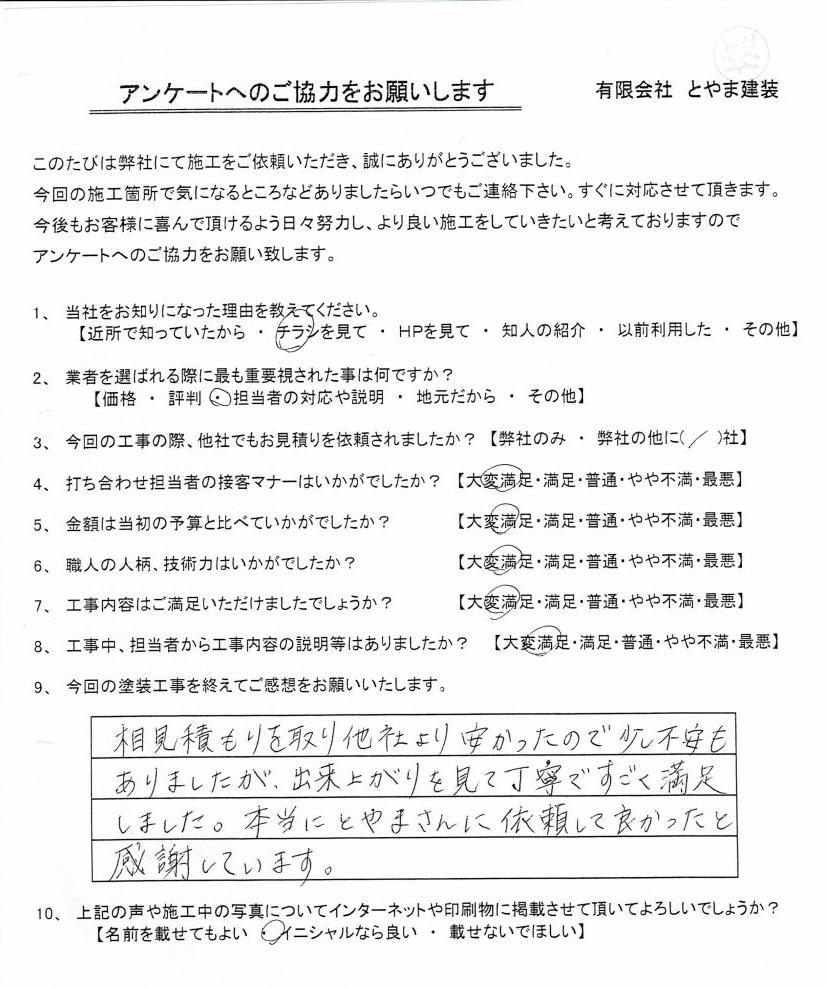 アンケートへのご協力をお願いします
有限会社 とやま建装
このたびは弊社にて施工をご依頼いただき、誠にありがとうございました。
今回の施工箇所で気になるところなどありましたらいつでもご連絡下さい。すぐに対応させて頂きます。
今後もお客様に喜んで頂けるよう日々努力し、より良い施工をしていきたいと考えておりますので
アンケートへのご協力をお願い致します。
1、 当社をお知りになった理由を教えてください。
【近所で知っていたから ・ チラシを見て ・ HPを見て ・ 知人の紹介 ・ 以前利用した ・ その他】
2、 業者を選ばれる際に最も重要視された事は何ですか？
【価格 ・ 評判 ・ 担当者の対応や説明 ・ 地元だから ・ その他】
3、 今回の工事の際、他社でもお見積りを依頼されましたか？ 【弊社のみ ・ 弊社の他に( / )社】
4、 打ち合わせ担当者の接客マナーはいかがでしたか？ 【大変満足・満足・普通・やや不満・最悪】
5、 金額は当初の予算と比べていかがでしたか？ 【大変満足・満足・普通・やや不満・最悪】
6、 職人の人柄、技術力はいかがでしたか？ 【大変満足・満足・普通・やや不満・最悪】
7、 工事内容はご満足いただけましたでしょうか？ 【大変満足・満足・普通・やや不満・最悪】
8、 工事中、担当者から工事内容の説明等はありましたか？ 【大変満足・満足・普通・やや不満・最悪】
9、 今回の塗装工事を終えてご感想をお願いいたします。
相見積もりを取り他社より安かったので少し不安も
ありましたが、出来上がりを見て丁寧ですごく満足
しました。本当にとやまさんに依頼して良かったと
感謝しています。
10、 上記の声や施工中の写真についてインターネットや印刷物に掲載させて頂いてよろしいでしょうか？
【名前を載せてもよい ・ イニシャルなら良い ・ 載せないでほしい】